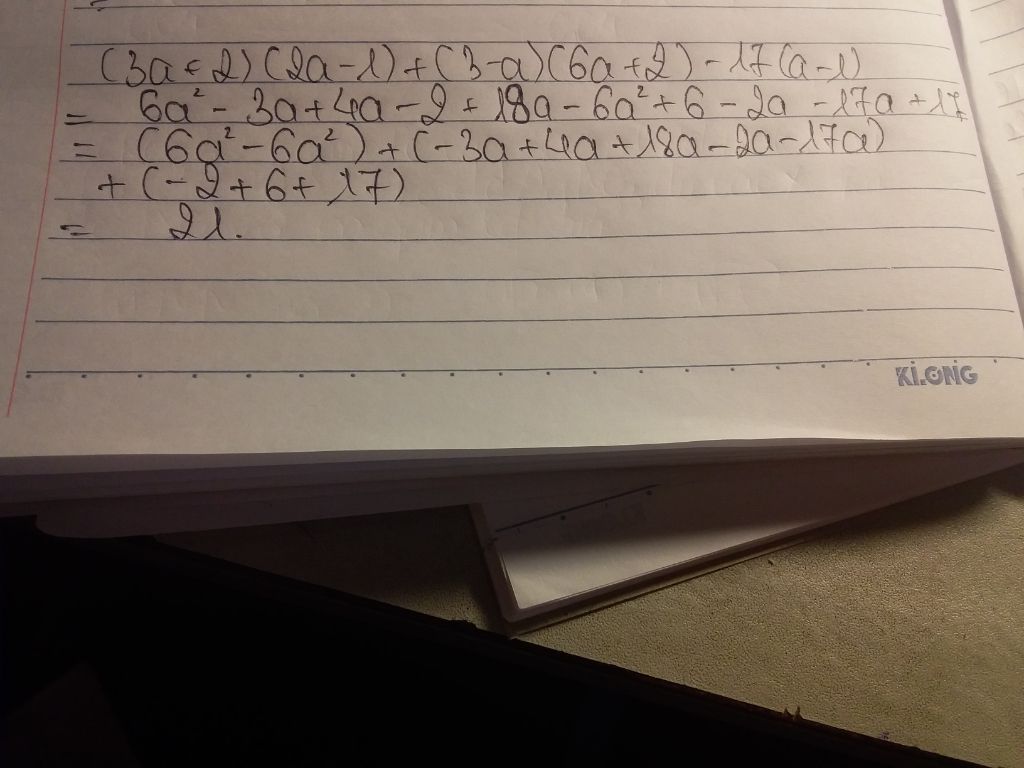 (3a + 2)(2a - 1) + (3 - a)(6a + 2) - 17(a - 1)
= 6a² - 3a + 4a - 2 + 18a - 6a² + 6 - 2a - 17a + 17
= (6a² - 6a²) + (-3a + 4a + 18a - 2a - 17a)
+ (-2 + 6 + 17)
= 21.
KLONG